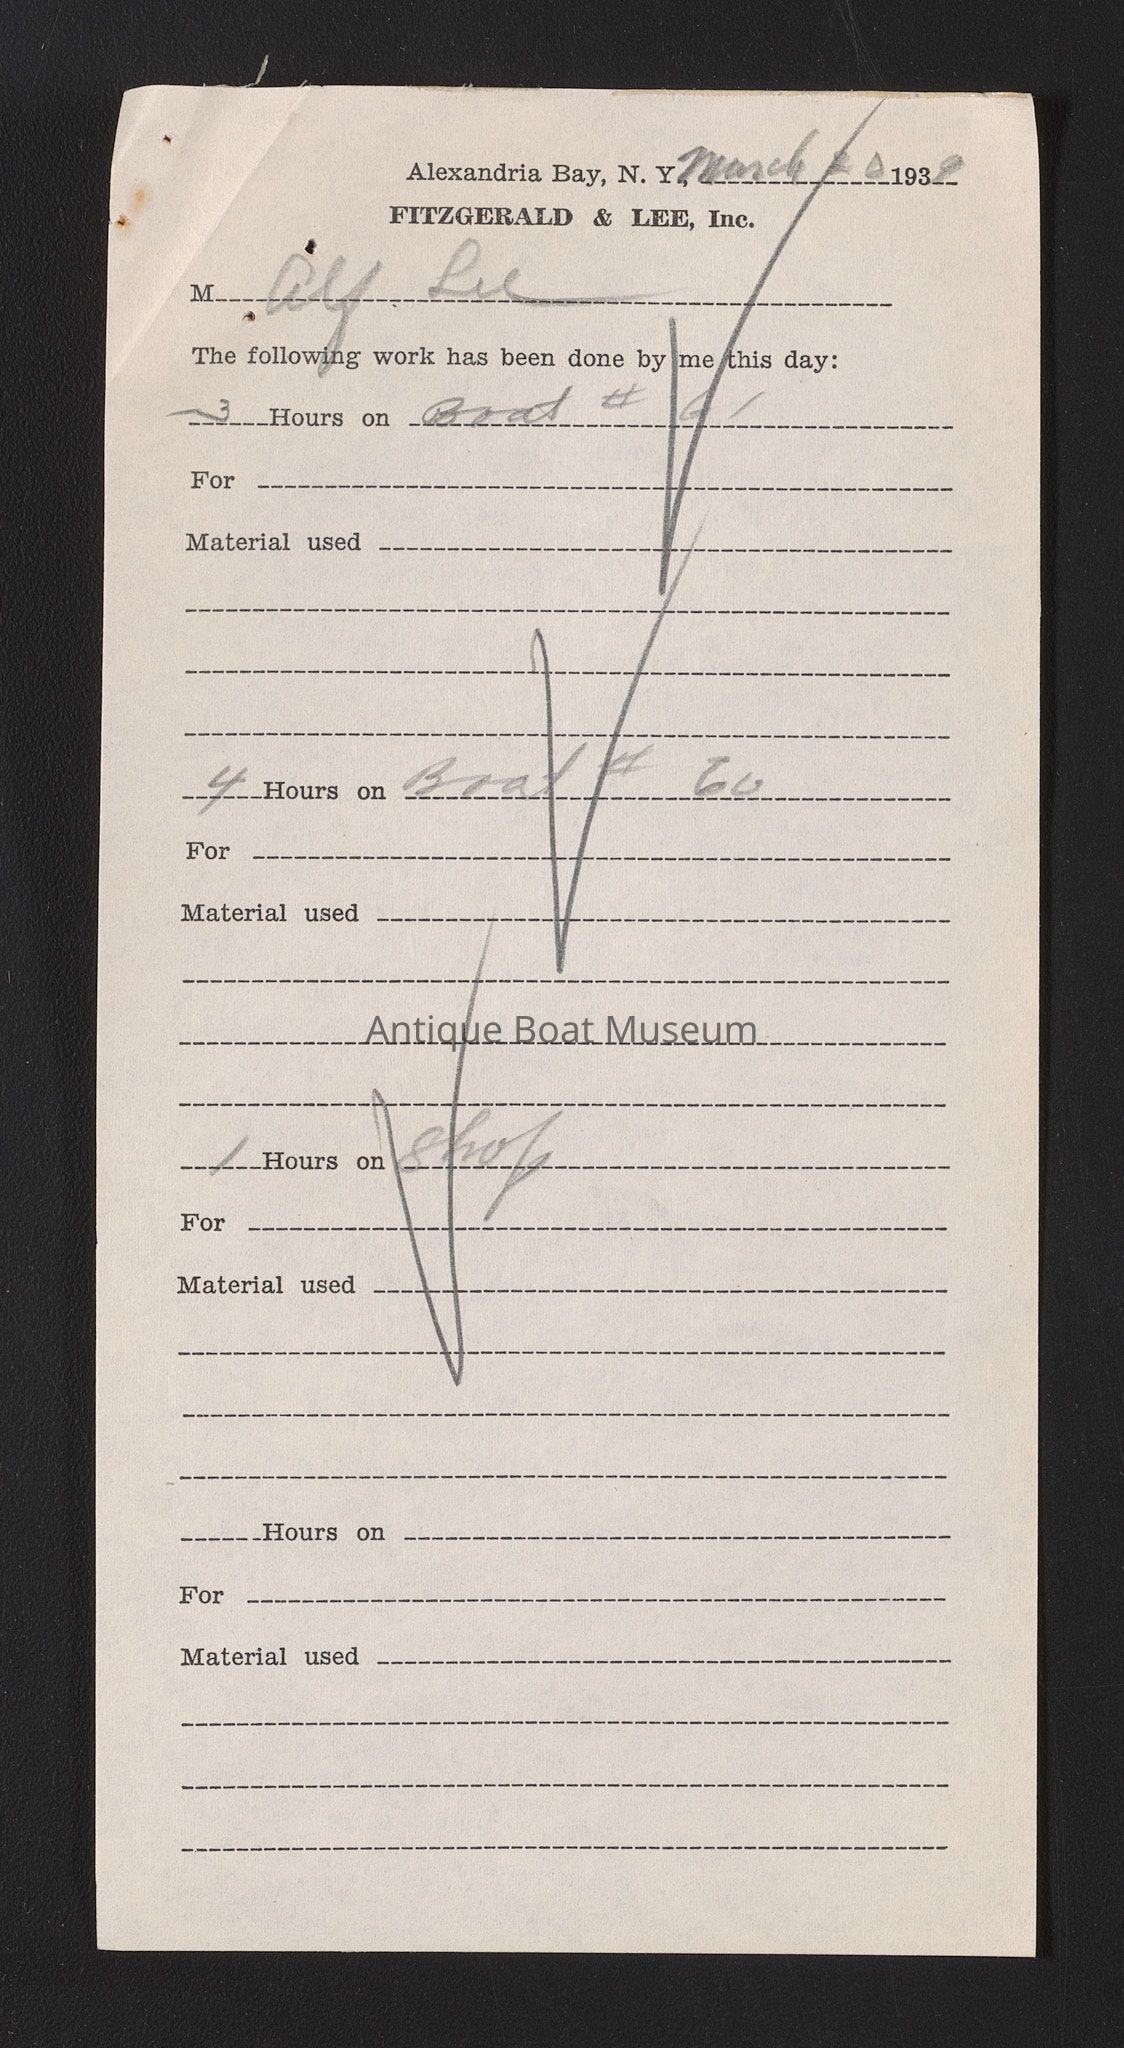 Alexandria Bay, N. Y., March 20 1939
FITZGERALD & LEE, Inc.
M Alf Lee
The following work has been done by me this day:
3 Hours on Boat # 61
For
Material used
4 Hours on Boat # 60
For
Material used
Antique Boat Museum
1 Hours on Shop
For
Material used
Hours on
For
Material used